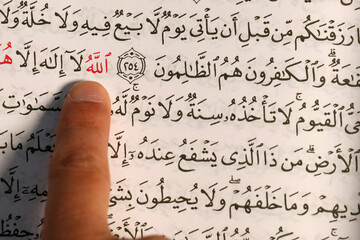 رَزَقْنَٰكُم مِّن قَبْلِ أَن يَأْتِىَ يَوْمٌ لَّا بَيْعٌ فِيهِ وَلَا خُلَّةٌ وَلَا
وَٱلْكَٰفِرُونَ هُمُ ٱلظَّٰلِمُونَ ٢٥٤ ٱللَّهُ لَآ إِلَٰهَ إِلَّا
ٱلْقَيُّومُ لَا تَأْخُذُهُۥ سِنَةٌ وَلَا نَوْمٌ لَّهُۥ
ٱلْأَرْضِ مَن ذَا ٱلَّذِى يَشْفَعُ عِندَهُۥٓ إِلَّا
وَمَا خَلْفَهُمْ وَلَا يُحِيطُونَ